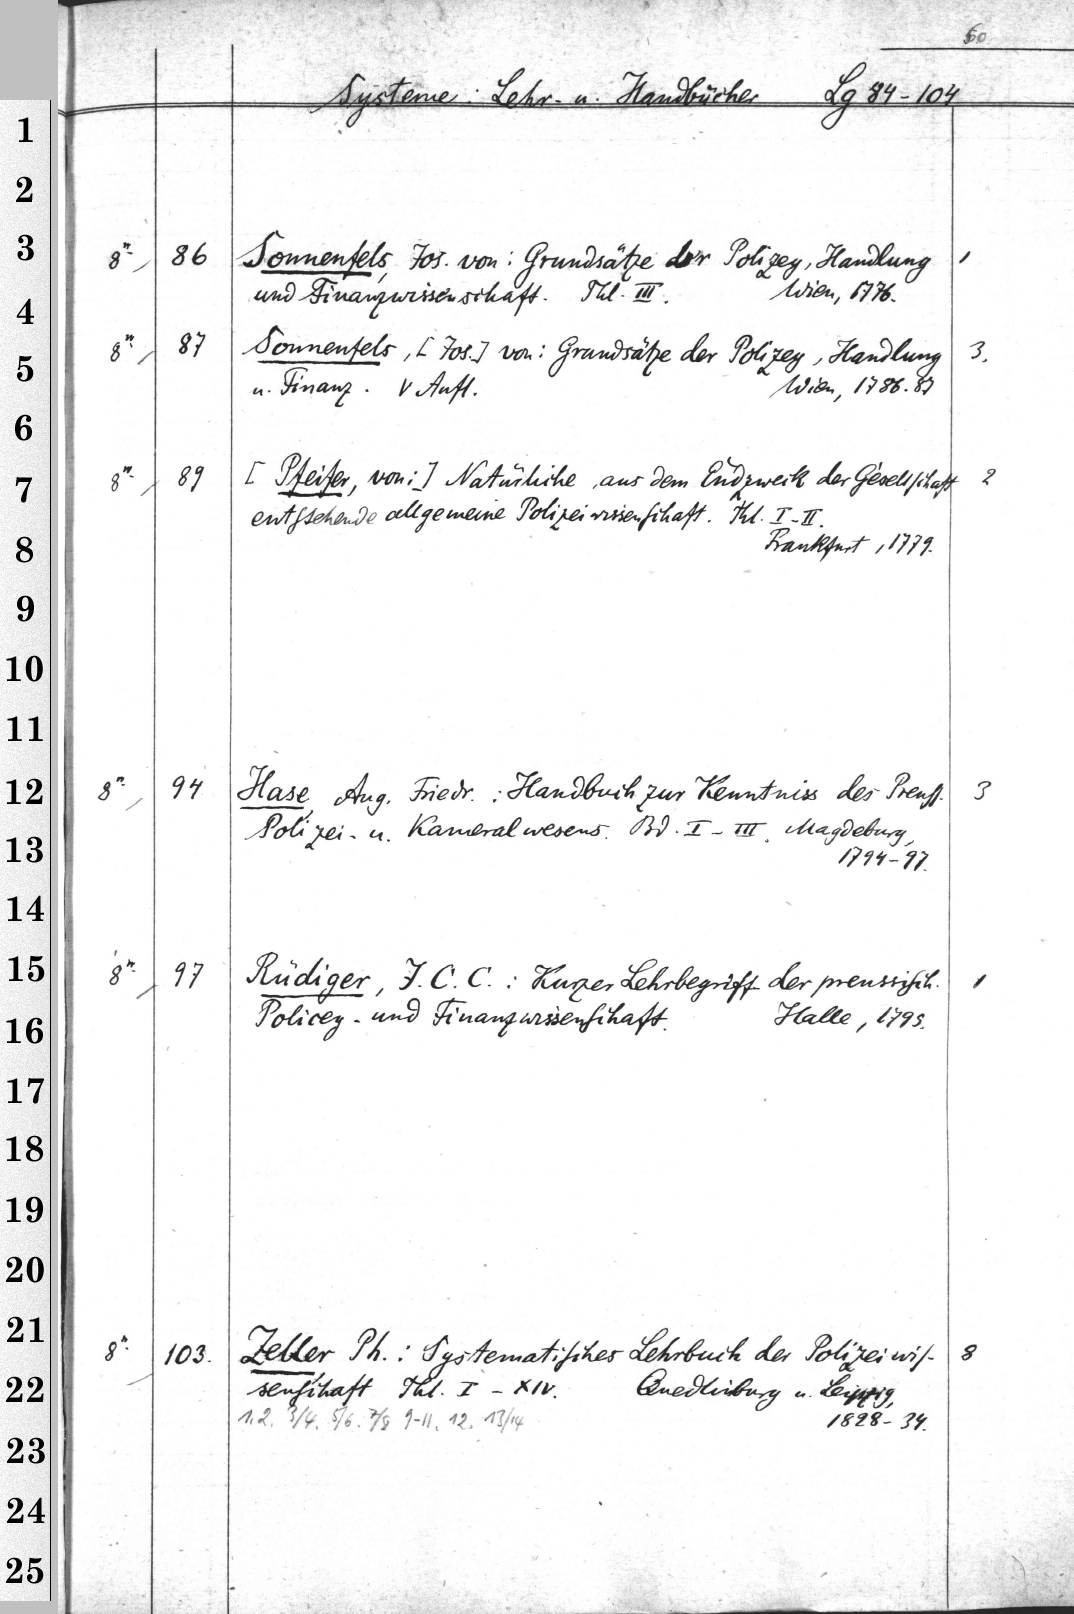 60
Systeme: Lehr- u. Handbücher Lg 84-104
1
2
3 8° 86 Sonnenfels, Jos. von: Grundsätze der Polizey, Handlung 1
4 und Finanzwissenschaft. Thl. III. Wien, 1776.
8° 87 Sonnenfels, [Jos.] von: Grundsätze der Polizey, Handlung 3.
5
u. Finanz. V Aufl. Wien, 1786-87
6
7 8° 89 [Pfeifer, von:] Natürliche, aus dem Endzweck der Gesellschaft 2
entstehende allgemeine Polizeiwissenschaft. Thl. I-II.
8 Frankfurt, 1779.
9
10
11
12 8° 94 Hase, Aug. Friedr.: Handbuch zur Kenntniss des Preuss. 3
Polizei- u. Kameralwesens. Bd. I-III. Magdeburg,
13 1794-97.
14
15 8° 97 Rüdiger, J. C. C.: Kurzer Lehrbegriff der preussisch. 1
16 Policey- und Finanzwissenschaft. Halle, 1795.
17
18
19
20
21
8° 103. Zeller Ph.: Systematisches Lehrbuch der Polizeiwis- 8
22 senschaft Thl. I - XIV. Quedlinburg u. Leipzig,
1.2. 3/4. 5/6. 7/8 9-11. 12. 13/14 1828-34.
23
24
25